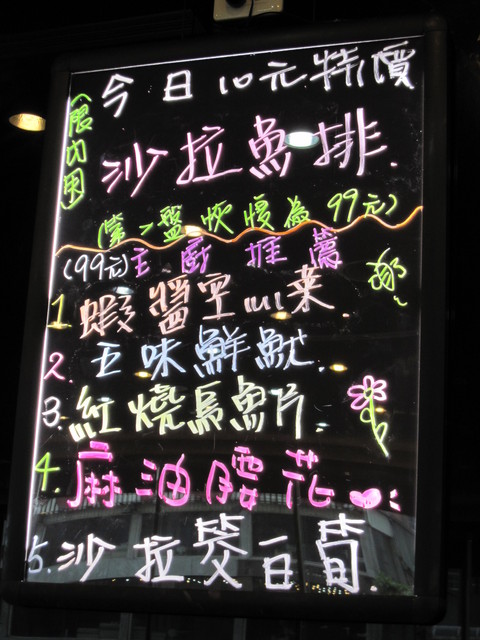 今日10元特價
(限內用)
沙拉魚排.
(第二盤恢復為99元)
(99元)主廚推薦
1 蝦醬空心菜.
2. 五味鮮魷.
3. 紅燒烏魚片.
4. 麻油腰花
5. 沙拉筊白筍